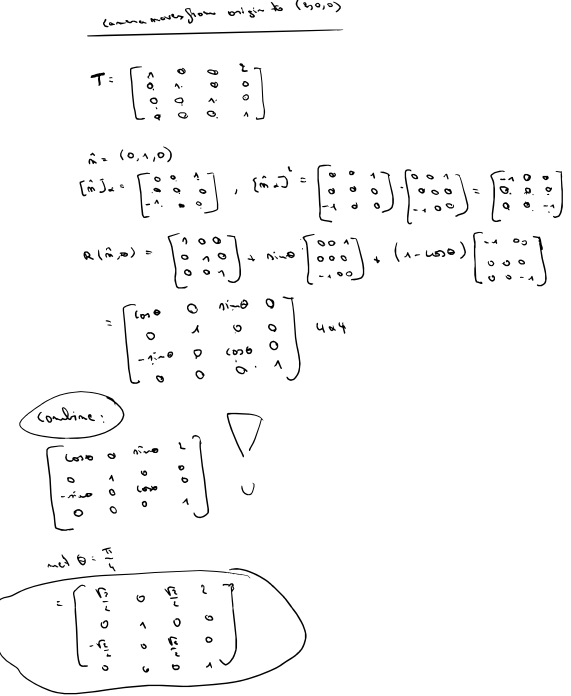 camera moves from origin to (2,0,0)
T = [ 1 0 0 2
0 1 0 0
0 0 1 0
0 0 0 1 ]
n̂ = (0,1,0)
[n̂]ₓ = [ 0 0 1 ; 0 0 0 ; -1 0 0 ] , [n̂ₓ]² = [ 0 0 1 ; 0 0 0 ; -1 0 0 ] · [ 0 0 1 ; 0 0 0 ; -1 0 0 ] = [ -1 0 0 ; 0 0 0 ; 0 0 -1 ]
R(n̂,θ) = [ 1 0 0 ; 0 1 0 ; 0 0 1 ] + sinθ [ 0 0 1 ; 0 0 0 ; -1 0 0 ] + (1-cosθ) [ -1 0 0 ; 0 0 0 ; 0 0 -1 ]
= [ cosθ 0 sinθ 0
0 1 0 0
-sinθ 0 cosθ 0
0 0 0 1 ] 4x4
Combine:
[ cosθ 0 sinθ 2
0 1 0 0
-sinθ 0 cosθ 0
0 0 0 1 ]
met θ = π/4
= [ √2/2 0 √2/2 2
0 1 0 0
-√2/2 0 √2/2 0
0 0 0 1 ]